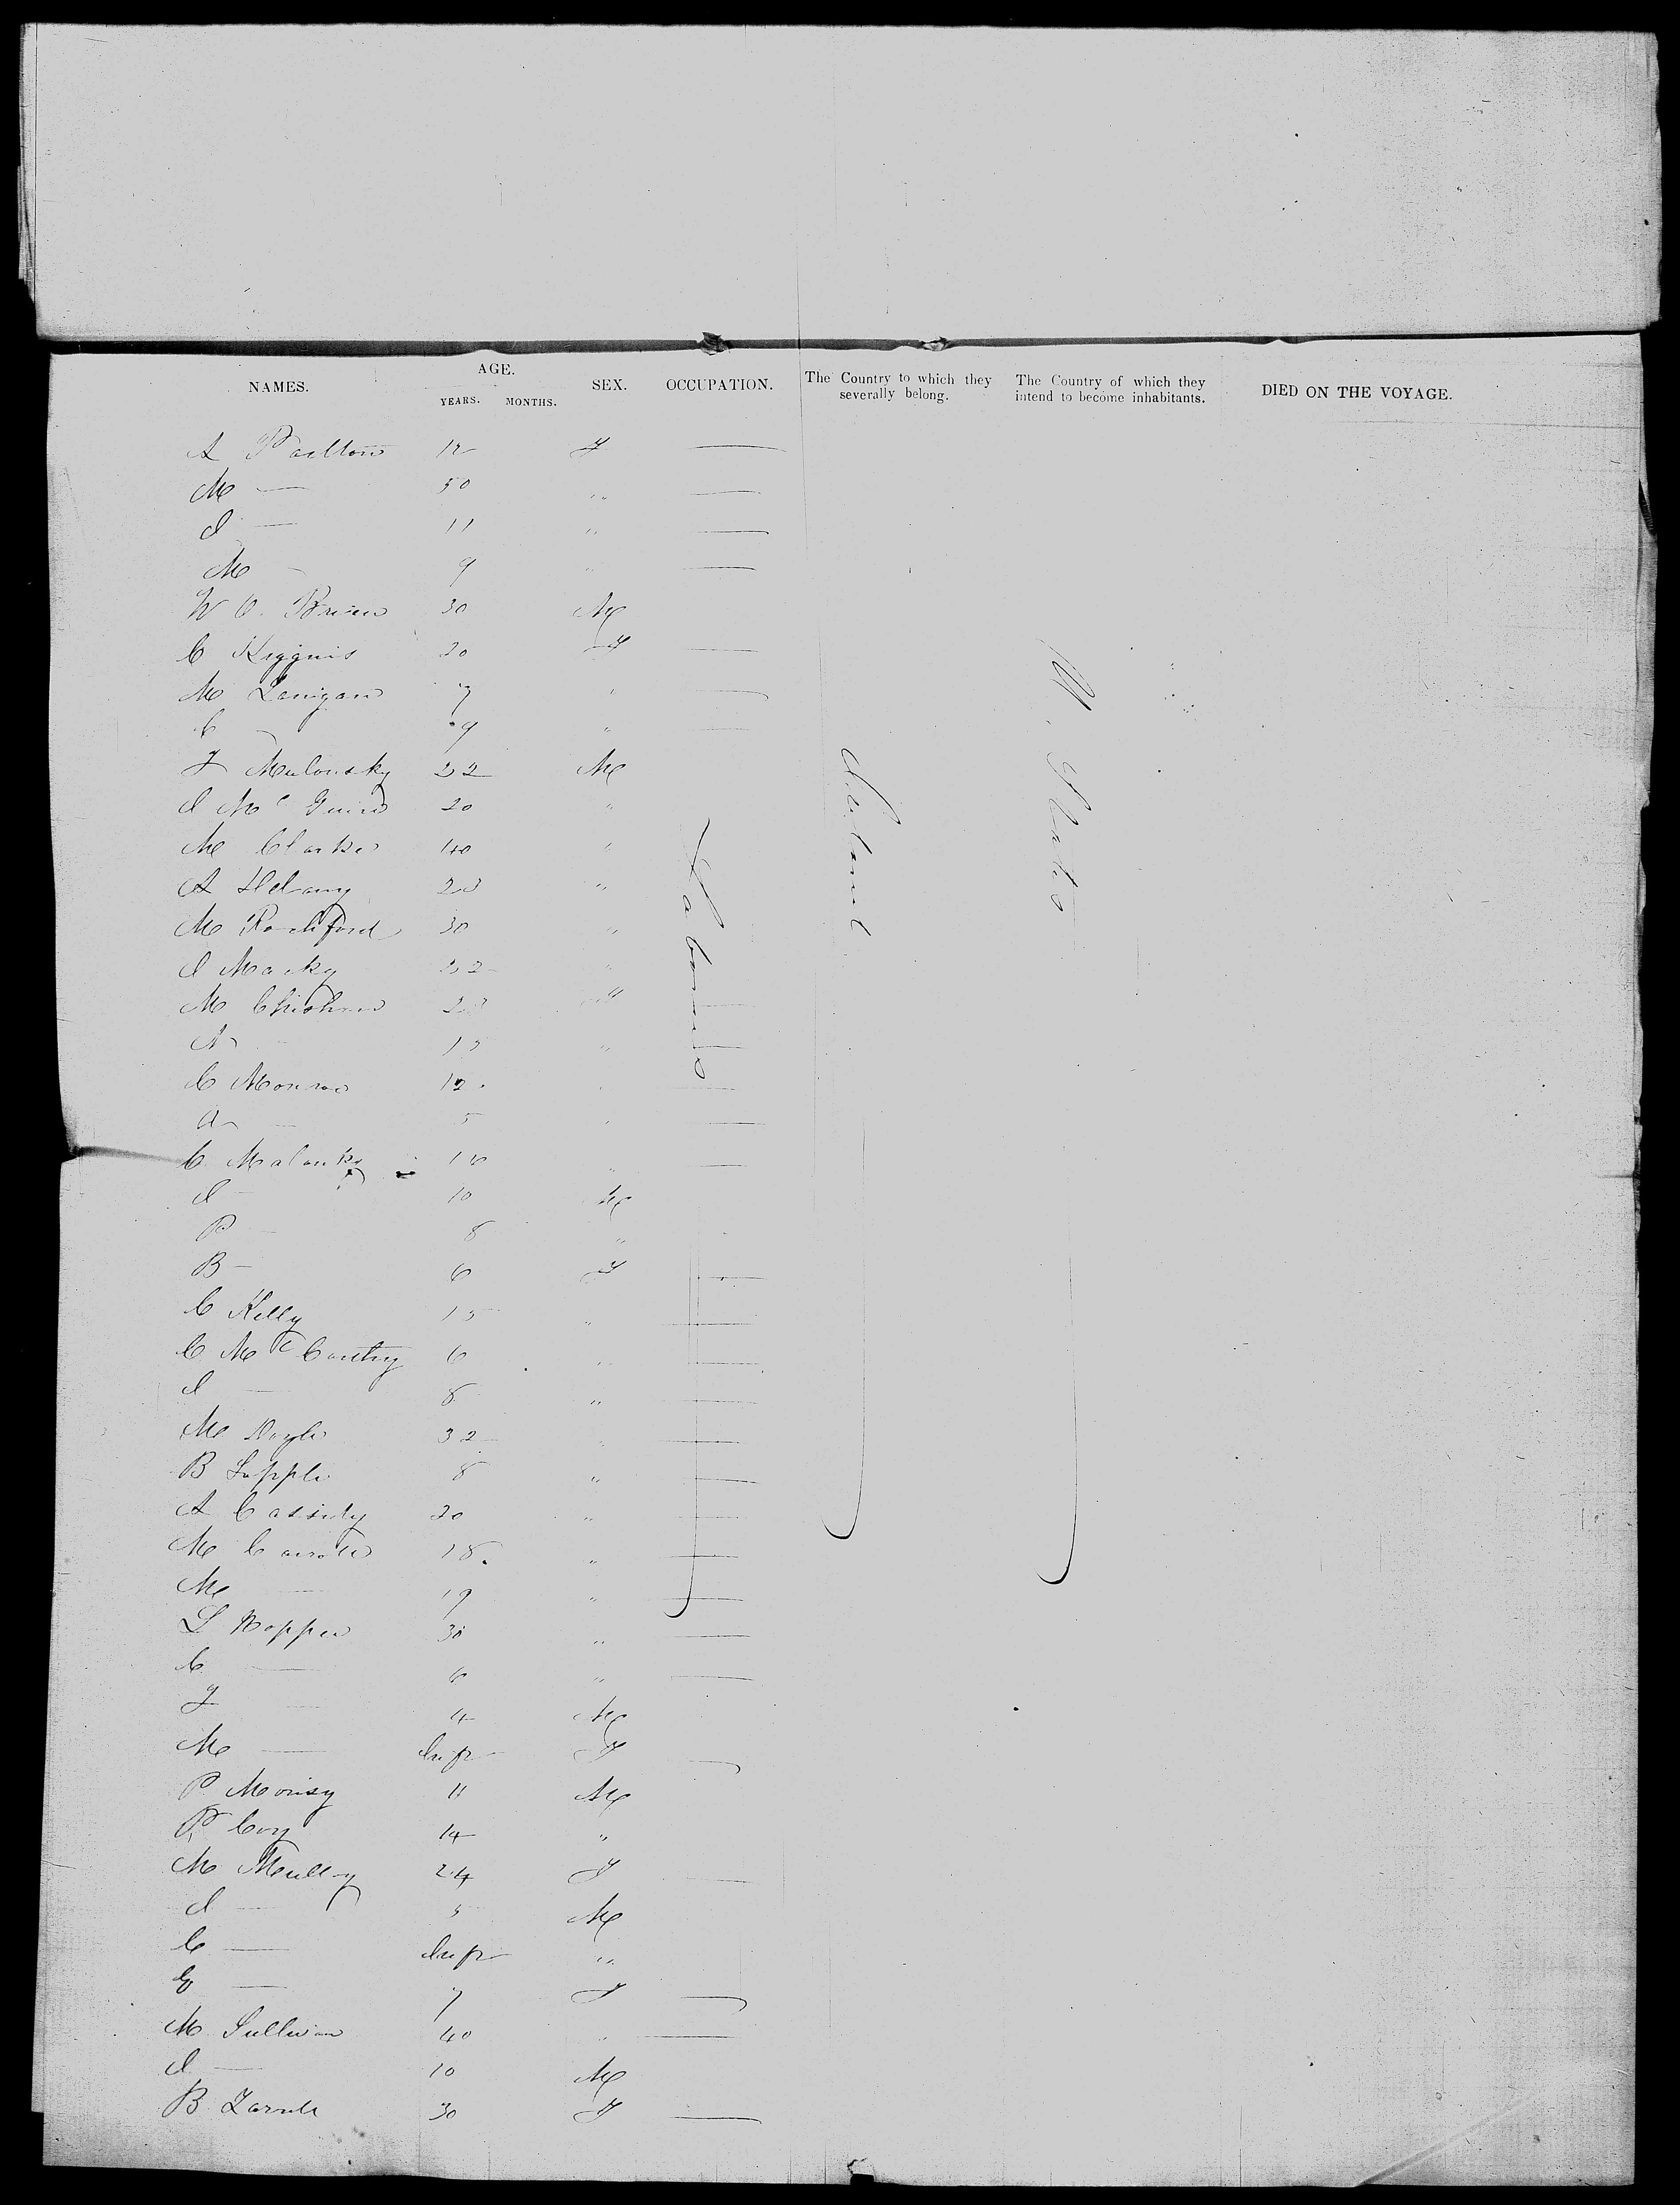 NAMES. AGE. SEX. OCCUPATION. The Country to which they severally belong. The Country of which they intend to become inhabitants. DIED ON THE VOYAGE.
YEARS. MONTHS.
A 12 F —
M — 50 " —
J — 11 " —
M — 9 " —
W O. Brien 30 M
C Higgins 20 F —
M Lanigan 7 " —
C — 9 " —
J Mulonsky 22 M
J Mc Guire 20 "
M Clarke 40 "
A Delany "
M Rochford 30 "
J Macky 22 "
M F —
A — " —
C Monroe 12 " —
A — 5 " —
C Malonky 18 " —
J — 10 M
P — 8 "
B — 6 F —
C Kelly 15 " —
C Mc Carthy 6 " —
J — 8 " —
M Doyle 32 " —
B Supple 8 " —
A Cassidy 20 " —
M 18 " —
M — 19 " —
L Hopper 30 " —
C — 6 " —
J — 4 M
M — Inft F —
P Morisy 11 M
P Coy 14 "
M Mulloy 24 F —
J — 5 M
C — Inft "
E — 7 F —
M Sullivan 40 " —
J — 10 M
B 30 F —
Labourers
Ireland
U. States